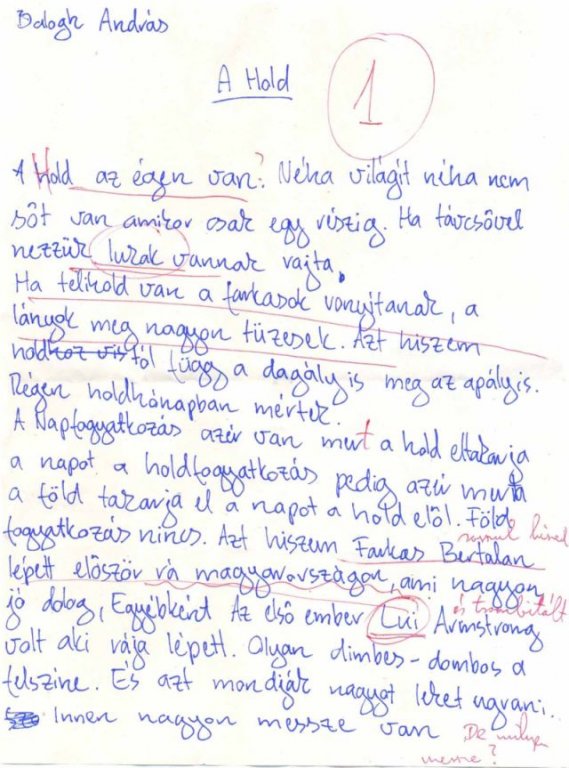 Balogh András
A Hold
1
A Hold az égen van? Néha világít néha nem
sőt van amikor csak egy részig. Ha távcsővel
nezzük lukak vannak rajta.
Ha telihold van a farkasok vonyítanak, a
lányok meg nagyon tüzesek. Azt hiszem
holdhoz től függ a dagály is meg az apály is.
Régen holdhónapban mértek.
A Napfogyatkozás azér van mert a hold eltakarja
a napot a holdfogyatkozás pedig azér mert a
a föld takarja el a napot a hold elöl. Föld
fogyatkozás nincs. Azt hiszem Farkas Bertalan
lépett először rá magyarországon, ami nagyon
és trombitált
jó dolog, Egyébként Az első ember Lui Armstrong
volt aki rája lépett. Olyan dimbes-dombos a
felszine. És azt mondják nagyot lehet ugrani.
Innen nagyon messze van De milyen
messze?